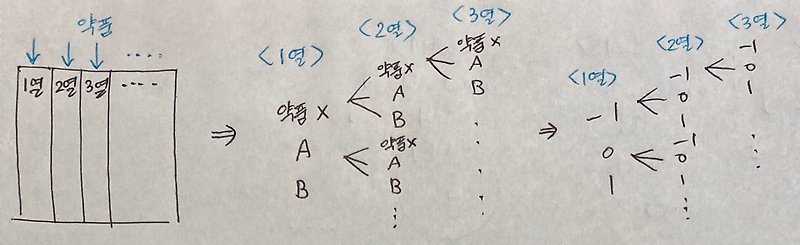 약품
1열 2열 3열 ....
⇒
<1열>
약품 X
A
B
<2열>
약품 X
A
B
약품 X
A
B
<3열>
약품 X
A
B
⇒
<1열>
-1
0
1
<2열>
-1
0
1
-1
0
1
<3열>
-1
0
1